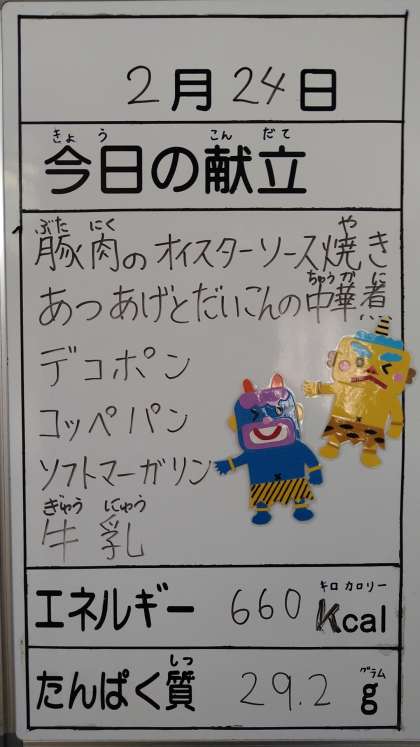 2月24日
きょう こんだて
今日の献立
ぶたにく や
豚肉のオイスターソース焼き
ちゅうか に
あつあげとだいこんの中華煮
デコポン
コッペパン
ソフトマーガリン
ぎゅう にゅう
牛乳
キロカロリー
エネルギー 660 Kcal
しつ グラム
たんぱく質 29.2 g